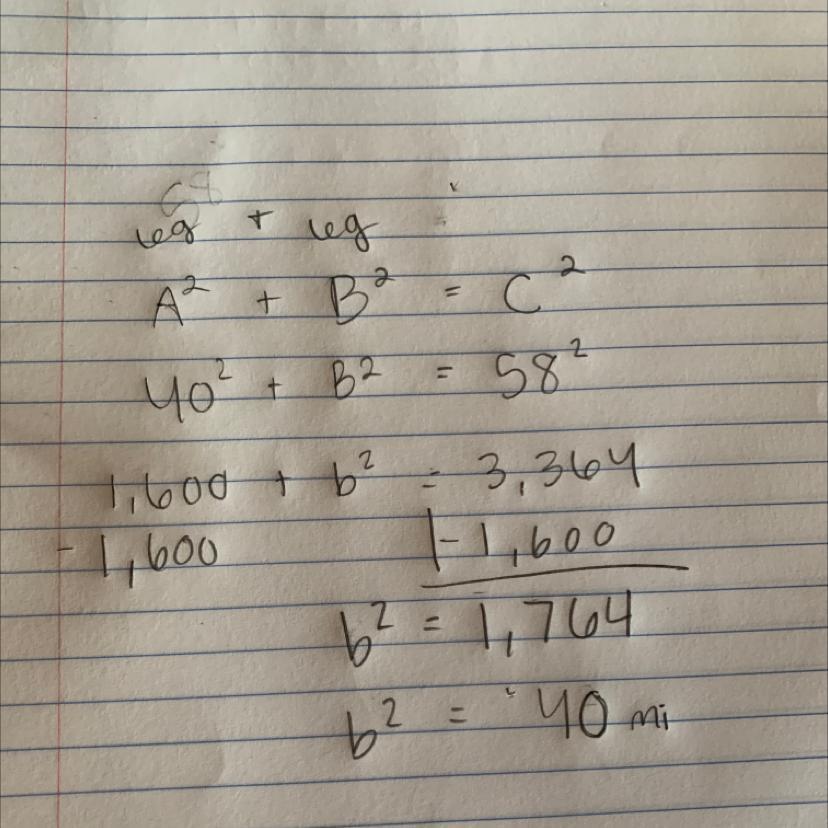 leg + leg =
A² + B² = C²
40² + B² = 58²
1,600 + b² = 3,364
- 1,600 |- 1,600
b² = 1,764
b² = 40 mi